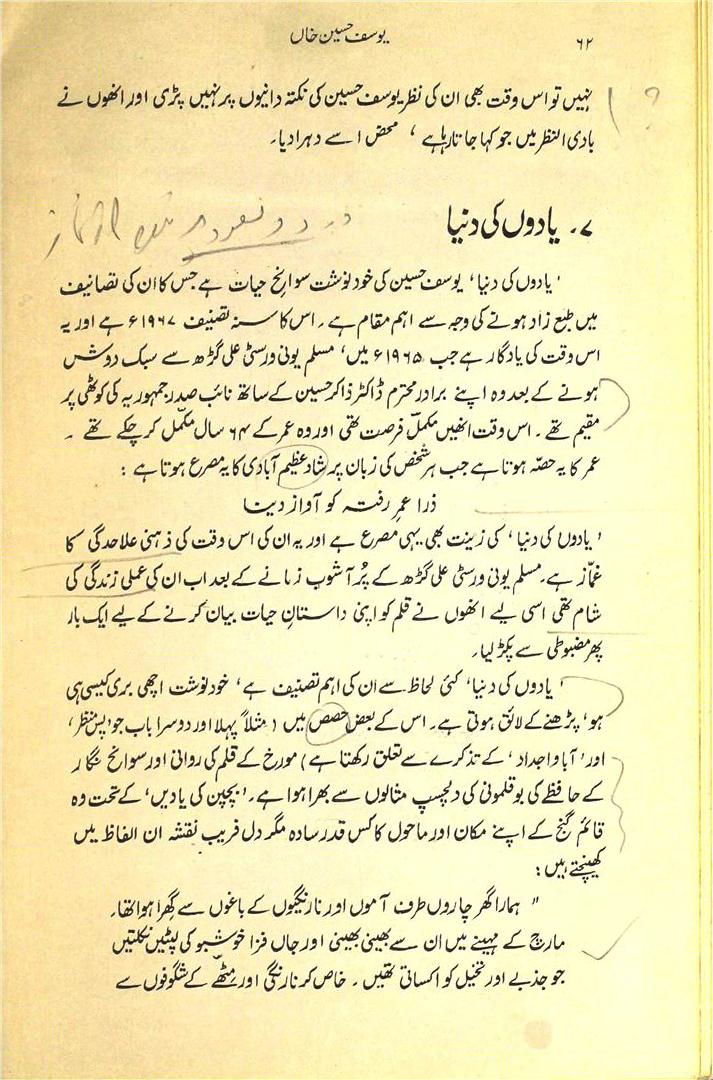 ۶۲
یوسف حسین خاں
نہیں تو اس وقت بھی ان کی نظر یوسف حسین کی نکتہ دانیوں پر نہیں پڑی اور انھوں نے
بادی النظر میں جو کہا جاتا رہا ہے، محض اسے دہرا دیا۔
۷۔ یادوں کی دنیا
'یادوں کی دنیا' یوسف حسین کی خود نوشت سوانح حیات ہے جس کا ان کی تصانیف
میں طبع زاد ہونے کی وجہ سے اہم مقام ہے۔ اس کا سنہ تصنیف ۱۹۶۷ء ہے اور یہ
اس وقت کی یادگار ہے جب ۱۹۶۵ء میں، مسلم یونی ورسٹی علی گڑھ سے سبک دوش
ہونے کے بعد وہ اپنے برادر محترم ڈاکٹر ذاکر حسین کے ساتھ نائب صدر جمہوریہ کی کوٹھی پر
مقیم تھے۔ اس وقت انھیں مکمل فرصت تھی اور وہ عمر کے ۶۴ سال مکمل کر چکے تھے۔
عمر کا یہ حصّہ ہوتا ہے جب ہر شخص کی زبان پر شاد عظیم آبادی کا یہ مصرع ہوتا ہے :
ذرا عمرِ رفتہ کو آواز دینا
'یادوں کی دنیا' کی زینت بھی یہی مصرع ہے اور یہ ان کی اس وقت کی ذہنی علاحدگی کا
غمّاز ہے۔ مسلم یونی ورسٹی علی گڑھ کے پُر آشوب زمانے کے بعد اب ان کی عملی زندگی کی
شام تھی اسی لیے انھوں نے قلم کو اپنی داستانِ حیات بیان کرنے کے لیے ایک بار
پھر مضبوطی سے پکڑ لیا۔
'یادوں کی دنیا' کئی لحاظ سے ان کی اہم تصنیف ہے، خود نوشت اچھی بری کیسی ہی
ہو، پڑھنے کے لائق ہوتی ہے۔ اس کے بعض حصص میں (مثلاً پہلا اور دوسرا باب جو 'پس منظر'
اور 'آبا و اجداد' کے تذکرے سے تعلق رکھتا ہے) مورخ کے قلم کی روانی اور سوانح نگار
کے حافظے کی بوقلمونی کی دلچسپ مثالوں سے بھرا ہوا ہے۔ 'بچپن کی یادیں' کے تحت وہ
قائم گنج کے اپنے مکان اور ماحول کا کس قدر سادہ مگر دل فریب نقشہ ان الفاظ میں
کھینچتے ہیں :
"ہمارا گھر چاروں طرف آموں اور نارنگیوں کے باغوں سے گھرا ہوا تھا۔
مارچ کے مہینے میں ان سے بھینی بھینی اور جاں فزا خوشبو کی لپٹیں نکلتیں
جو جذبے اور تخیل کو اکساتی تھیں۔ خاص کر نارنگی اور مِٹھّے کے شگوفوں سے